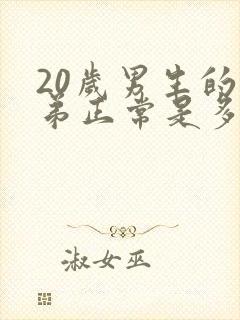 20歲男生的
弟正常是多
淑女巫